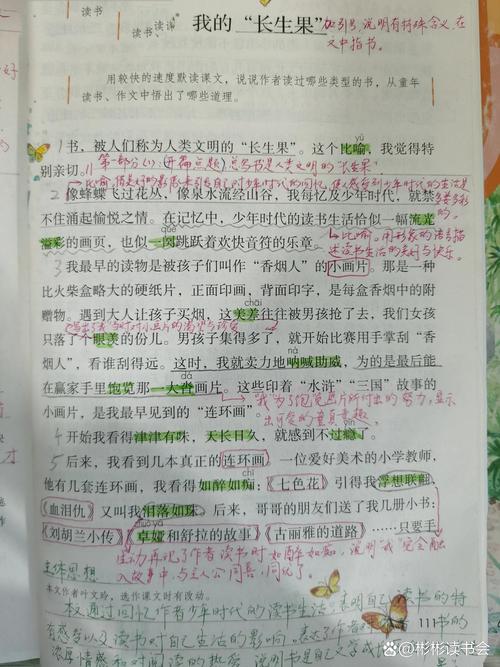 读书、读
我的“长生果”
加引号,说明有特殊含义,在
文中指书。
用较快的速度默读课文,说说作者读过哪些类型的书,从童年
读书、作文中悟出了哪些道理。
yù
1书,被人们称为人类文明的“长生果”。这个比喻,我觉得特
别亲切。//
第一部分(1):开篇点题,总写书是人类文明的“长生果”
2像蜂蝶飞过花丛,像泉水流经山谷,我每忆及少年时代,就禁
不住涌起愉悦之情。在记忆中,少年时代的读书生活恰似一幅流光
què
溢彩的画页,也似一阕跳跃着欢快音符的乐章。
比喻。用形象的语言描
述读书生活的美好与快乐。
3我最早的读物是被孩子们叫作“香烟人”的小画片。那是一种
比火柴盒略大的硬纸片,正面印画,背面印字,是每盒香烟中的附
chāi
赠物。遇到大人让孩子买烟,这美差往往被男孩抢了去,我们女孩
只落了个眼羡的份儿。男孩子集得多了,就开始比赛用手掌刮“香
nà
烟人”,看谁刮得远。这时,我就卖力地呐喊助威,为的是最后能
在赢家手里饱览那一大沓画片。这些印着“水浒”“三国”故事的
我为了饱览画片所付出的努力,显示
小画片,是我最早见到的“连环画”。
出可爱的童真童趣。
4开始我看得津津有味,天长日久,就感到不过瘾了。
5后来,我看到几本真正的连环画。一位爱好美术的小学教师,
他有几套连环画,我看得如醉如痴:《七色花》引得我浮想联翩,
《血泪仇》又叫我泪落如珠。后来,哥哥的朋友们送了我几册小书:
zhuó yà
《刘胡兰小传》《卓娅和舒拉的故事》《古丽雅的道路》……只要手
生动再现了作者读书时如醉如痴,说明“我”完全融
入故事中,与主人公同喜、同忧了。
主体思想
本文作者叶文玲,选作课文时有改动。
本文通过回忆作者少年时代的读书生活,表明自己读书的特
111
有感受以及读书对自己生活的影响。表达了作者
@彬彬读书会